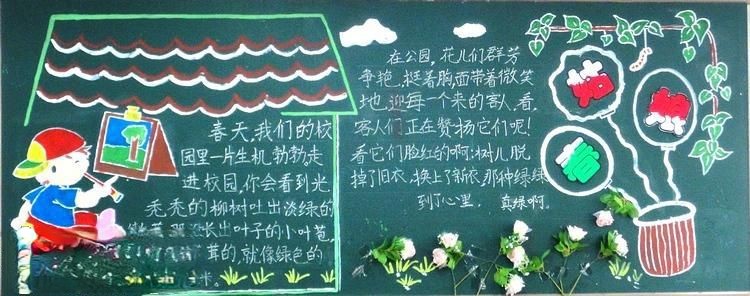 春天,我们的校
园里一片生机勃勃走
进校园,你会看到光
秃秃的柳树吐出淡绿的
长出叶子的小叶苞,
茸的,就像绿色的
米.
在公园,花儿们群芳
争艳,挺着胸,面带着微笑
地,迎每一个来的客人.看,
客人们正在赞扬它们呢!
看它们脸红的啊;树儿脱
掉了旧衣,换上了新衣,那种绿绿
到了心里. 真绿啊.